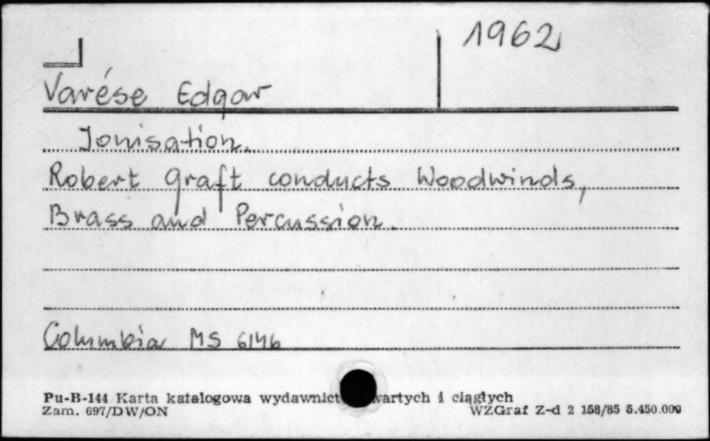 1962
Varése Edgar
Ionisation.
Robert Graft conducts Woodwinds,
Brass and Percussion.
Columbia MS 6146
Pu-B-144 Karta katalogowa wydawnict wartych i ciągłych
Zam. 697/DW/ON WZGraf Z-d 2 158/85 5.450.000